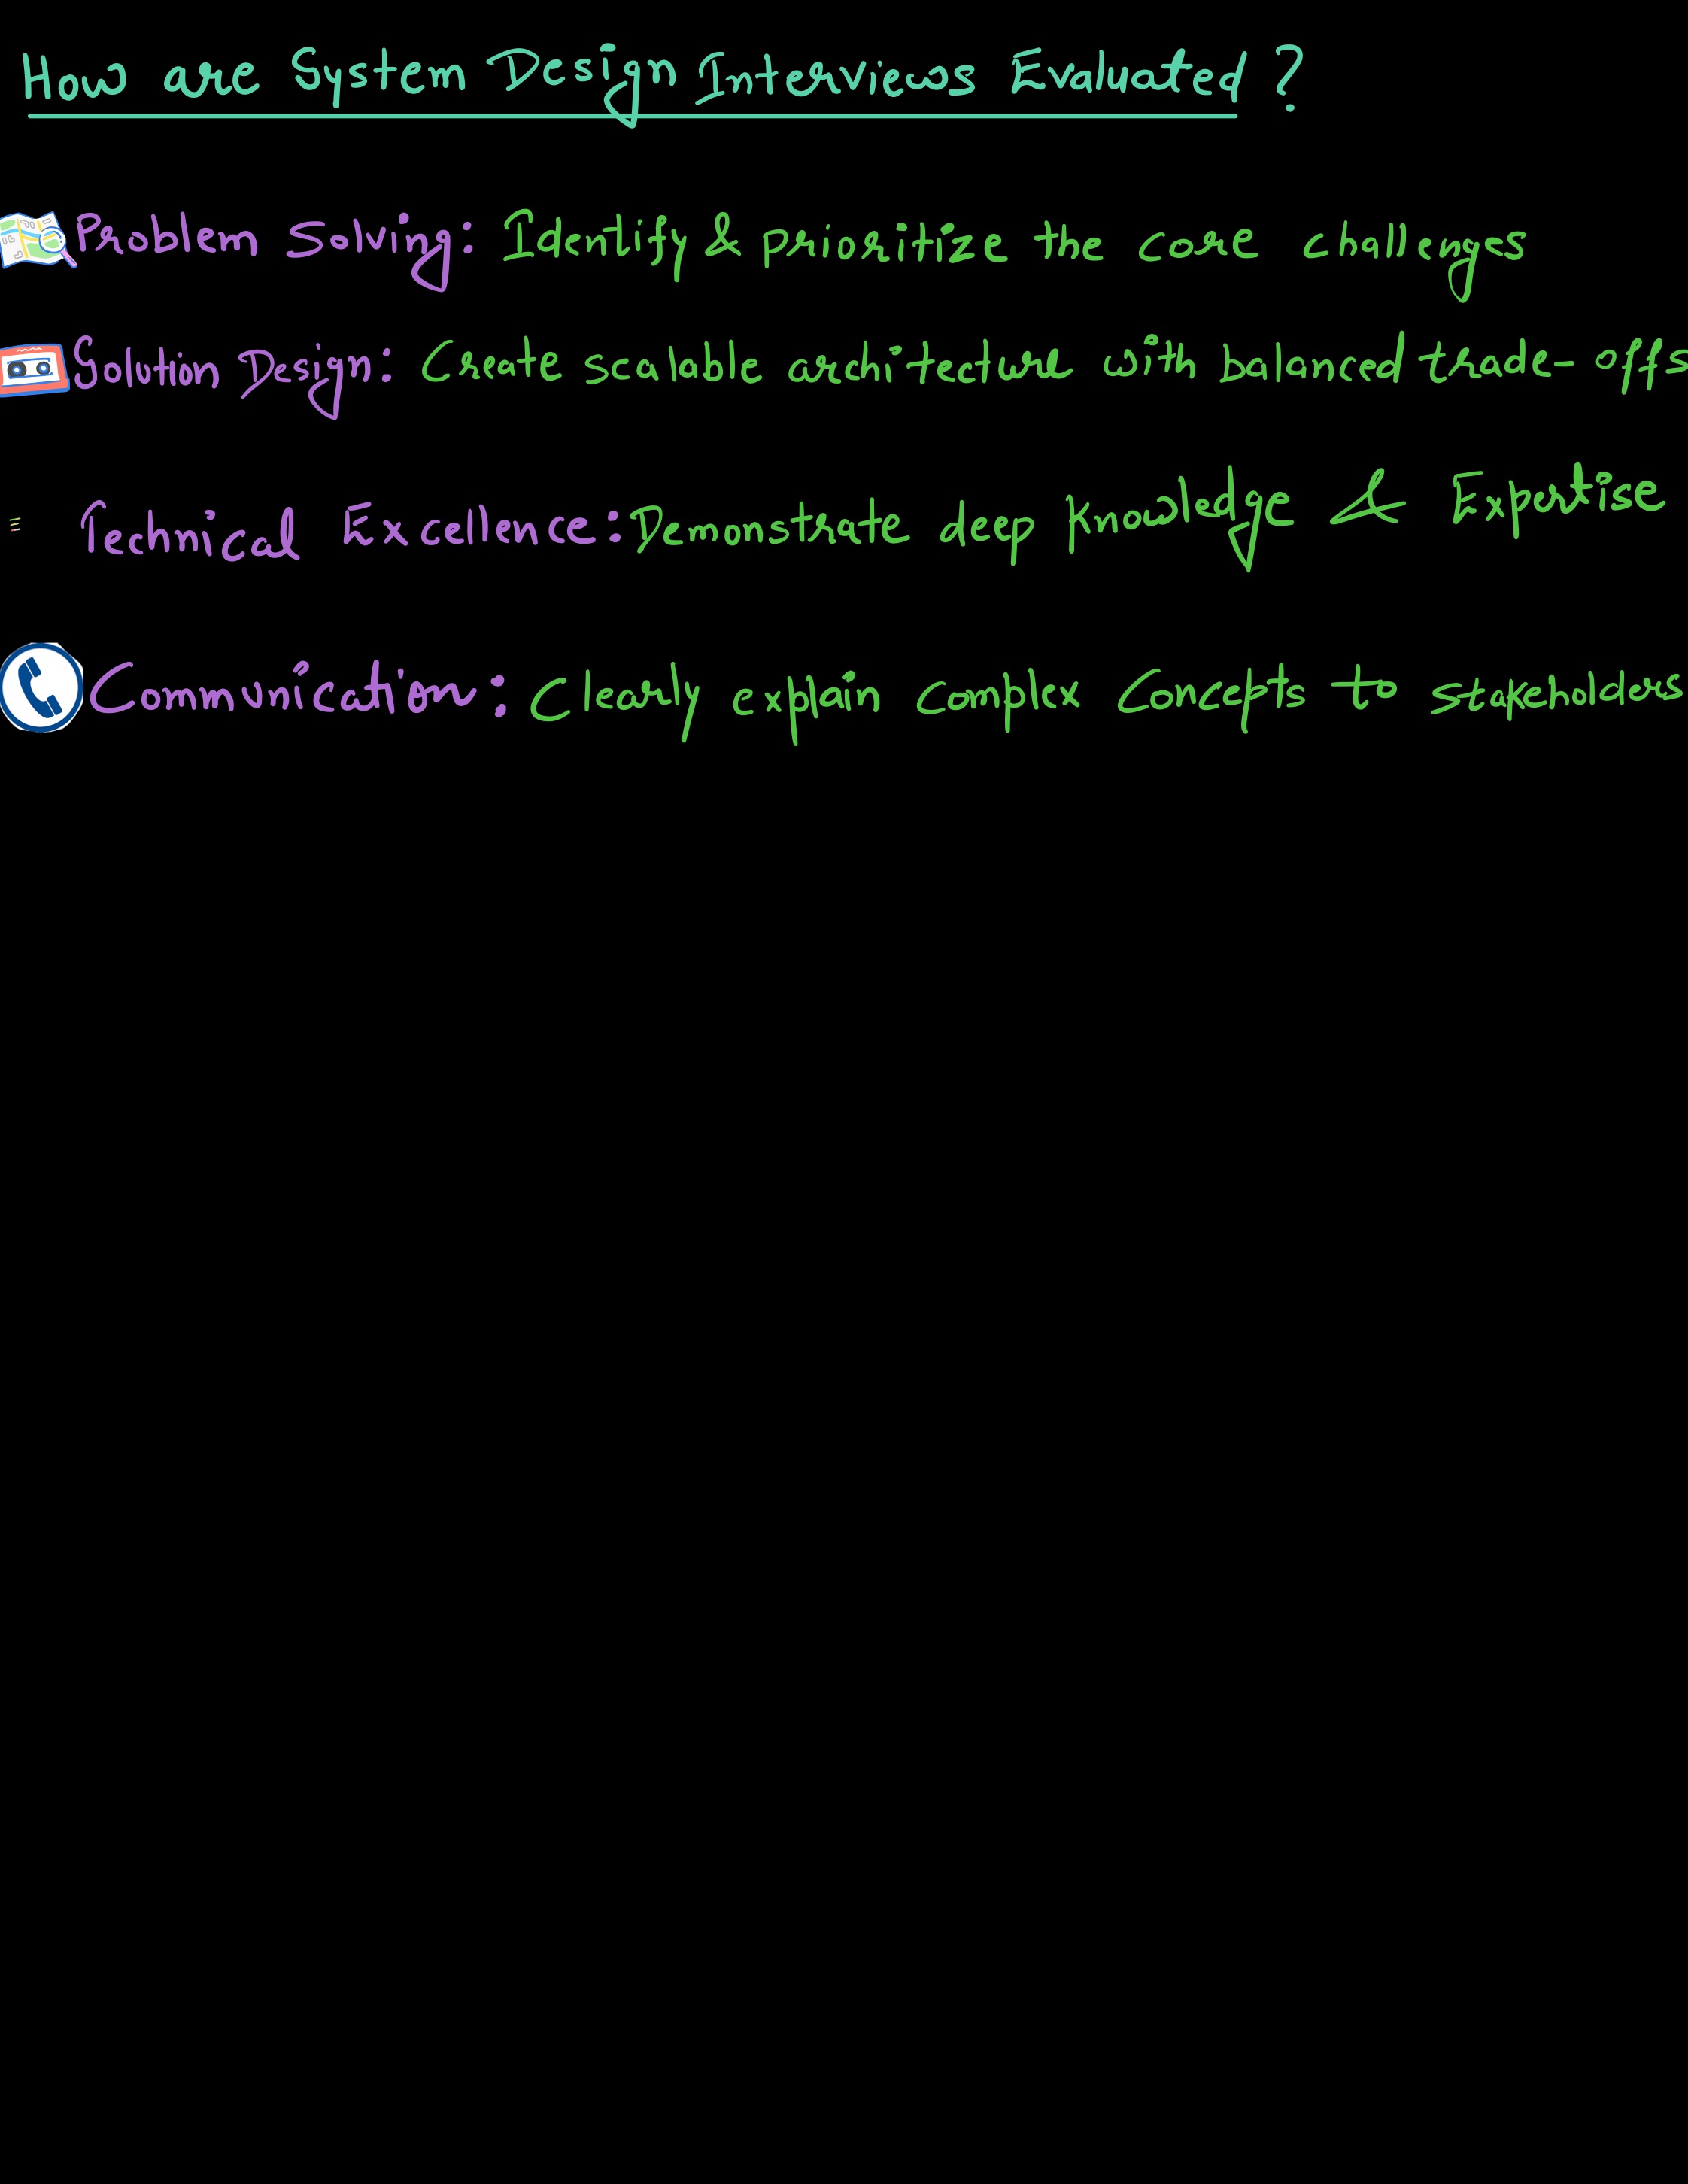 How are System Design Interviews Evaluated ?
Problem Solving: Identify & prioritize the core challenges
Solution Design: Create scalable architecture with balanced trade-offs
Technical Excellence: Demonstrate deep knowledge & Expertise
Communication: Clearly explain complex concepts to stakeholders